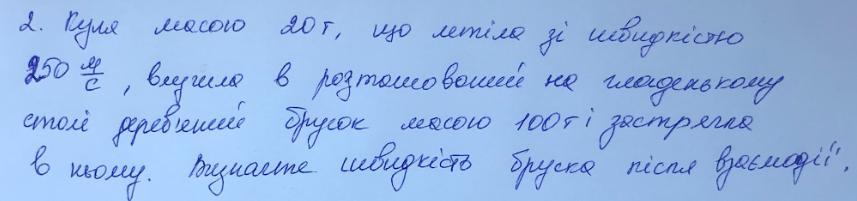 2. Куля масою 20г, що летіла зі швидкістю
250 м/с, влучила в розташований на гладенькому
столі дерев'яний брусок масою 100г і застрягла
в ньому. Визначте швидкість бруска після взаємодії.